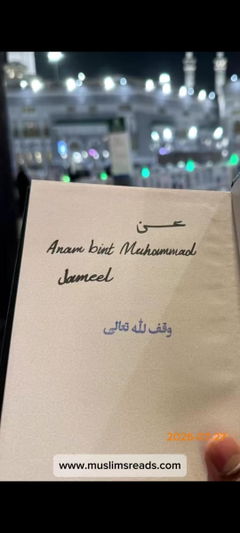 عن
Anam bint Muhammad
Jameel
وقف لله تعالى
www.muslimsreads.com